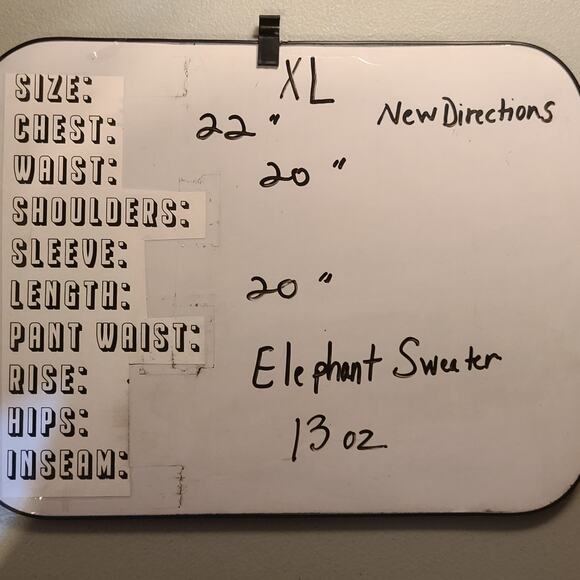 SIZE: XL
New Directions
CHEST: 22"
WAIST: 20"
SHOULDERS:
SLEEVE:
LENGTH: 20"
PANT WAIST:
Elephant Sweater
RISE:
HIPS: 13 oz
INSEAM: